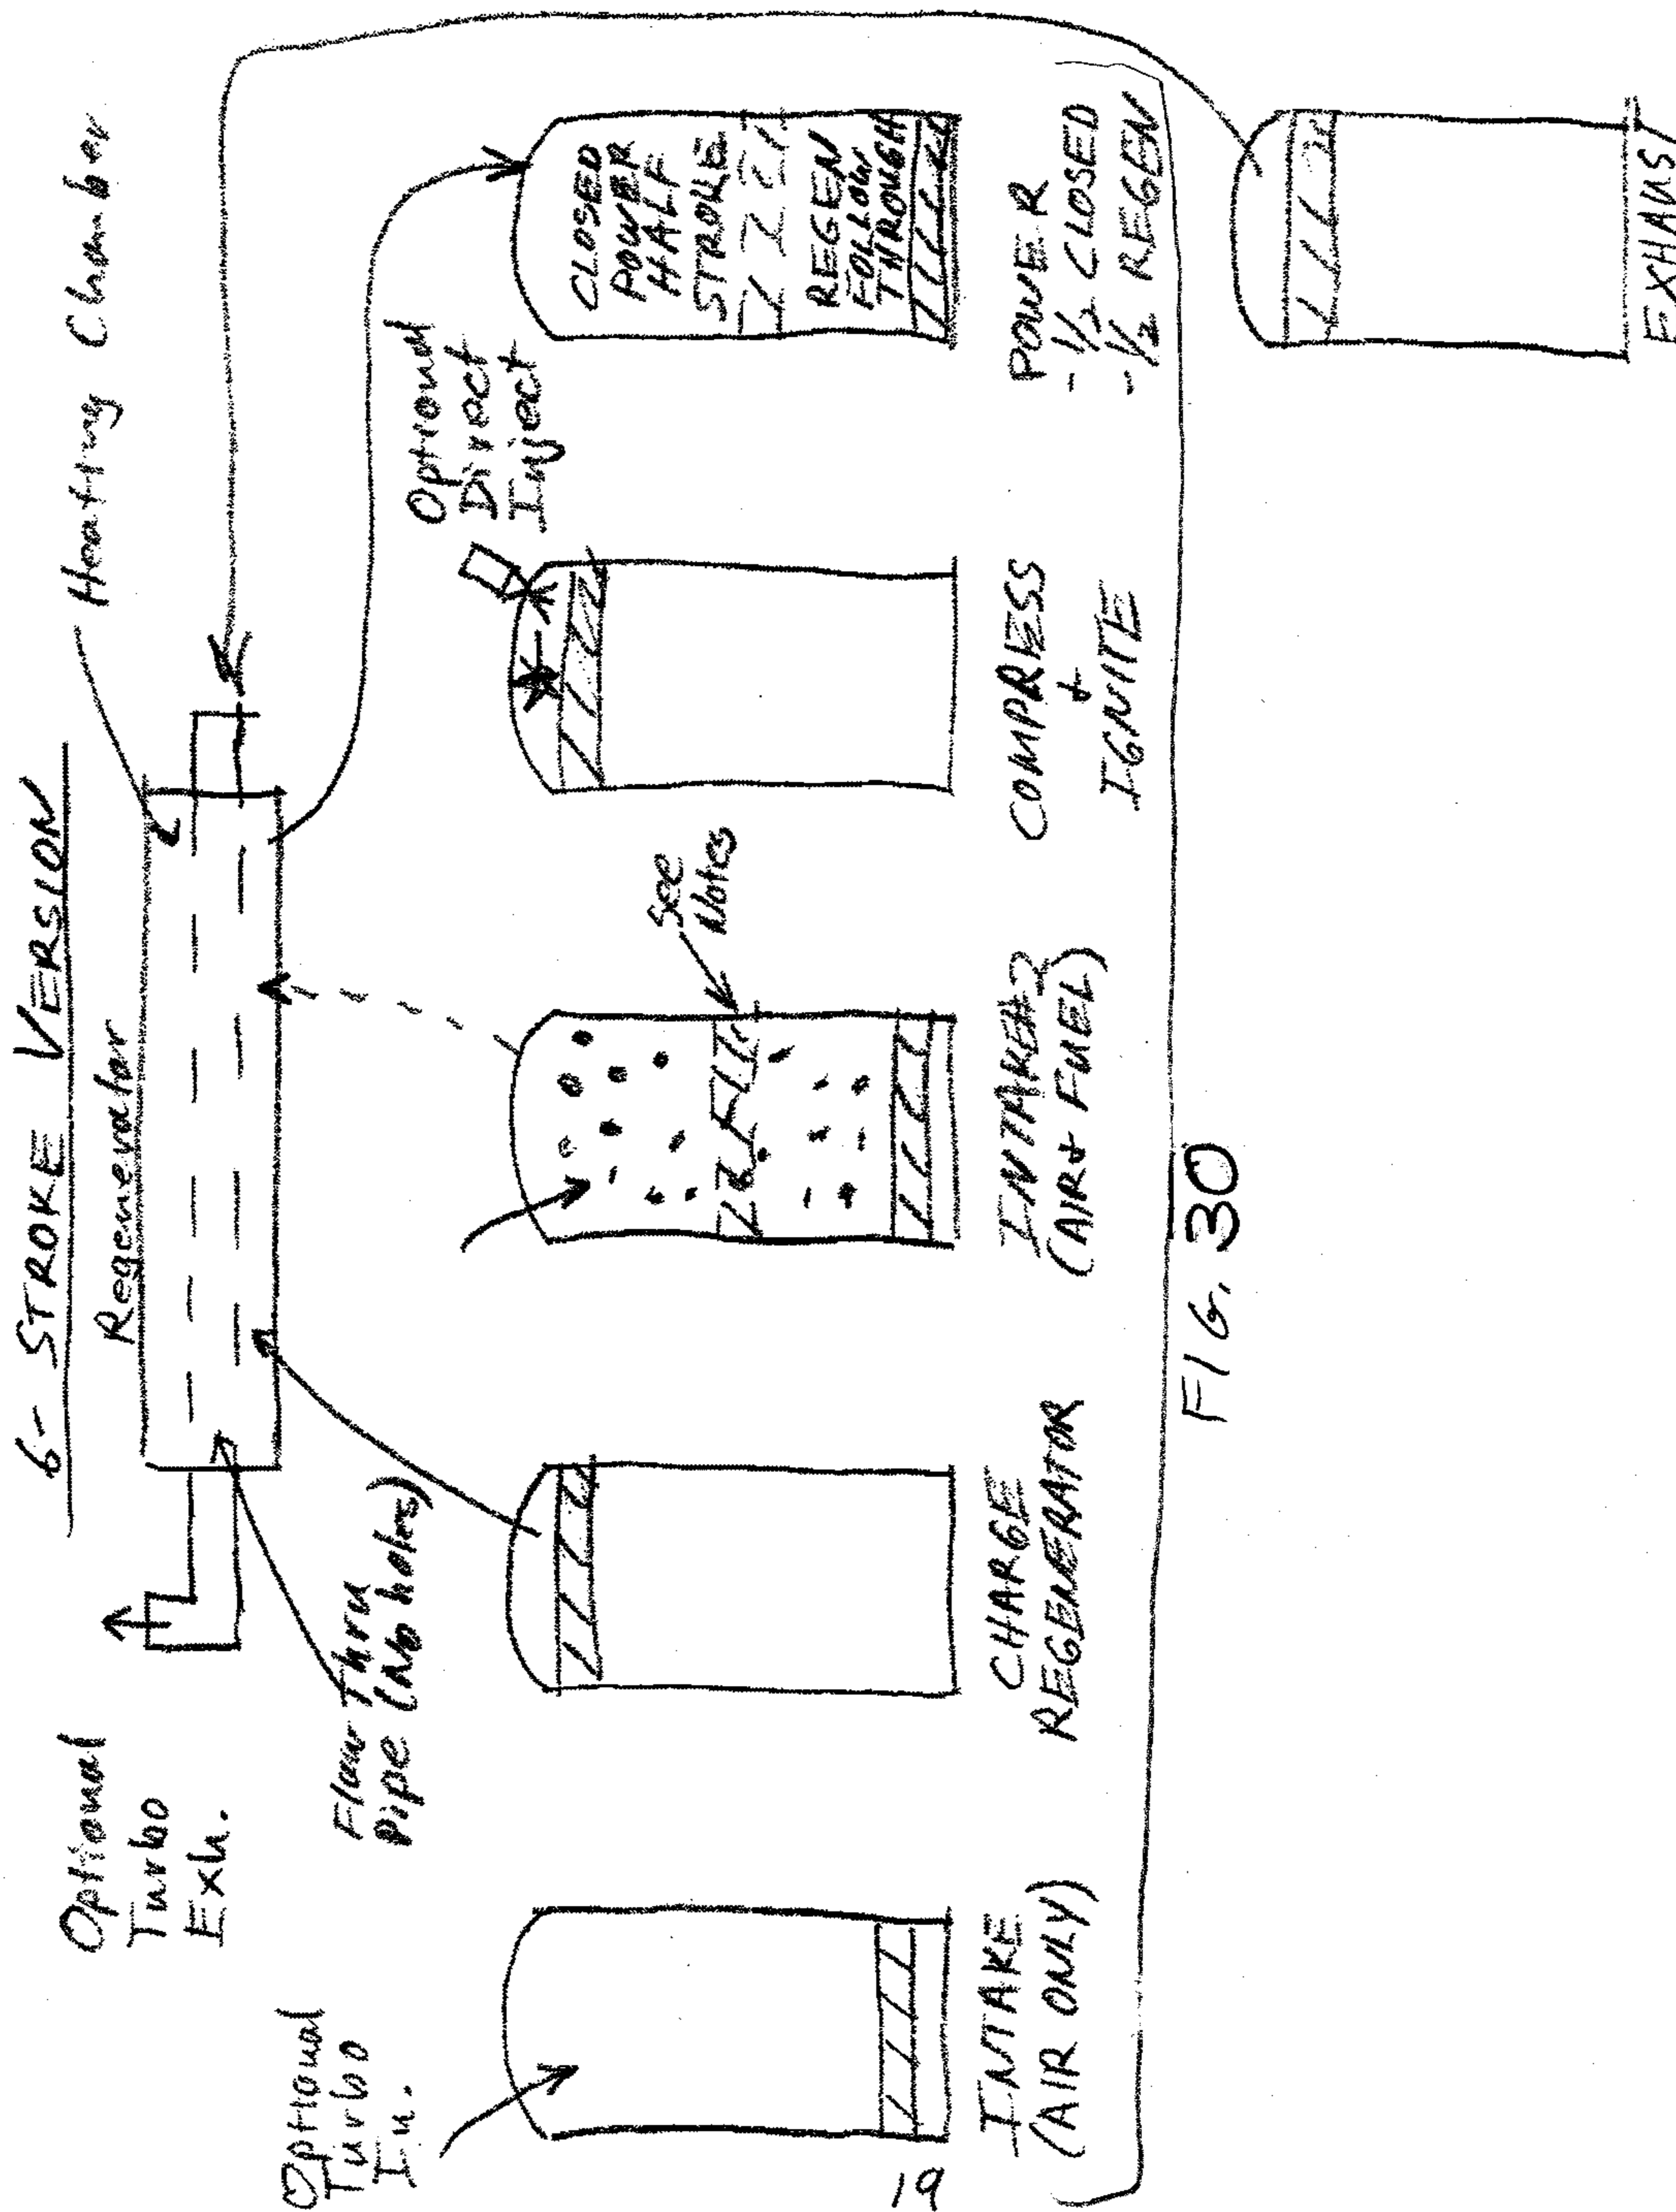 6-STROKE VERSION
Regenerator
Heating Chamber
Optional
Turbo
Exh.
Flow Thru
Pipe (No holes)
Optional
Turbo
In.
See
Notes
Optional
Direct
Inject
CLOSED
POWER
HALF
STROKE
REGEN
FOLLOW
THROUGH
INTAKE
(AIR ONLY)
CHARGE
REGENERATOR
INTAKE#2
(AIR & FUEL)
COMPRESS
&
IGNITE
POWER
- 1/2 CLOSED
- 1/2 REGEN
EXHAUST
19
FIG. 30